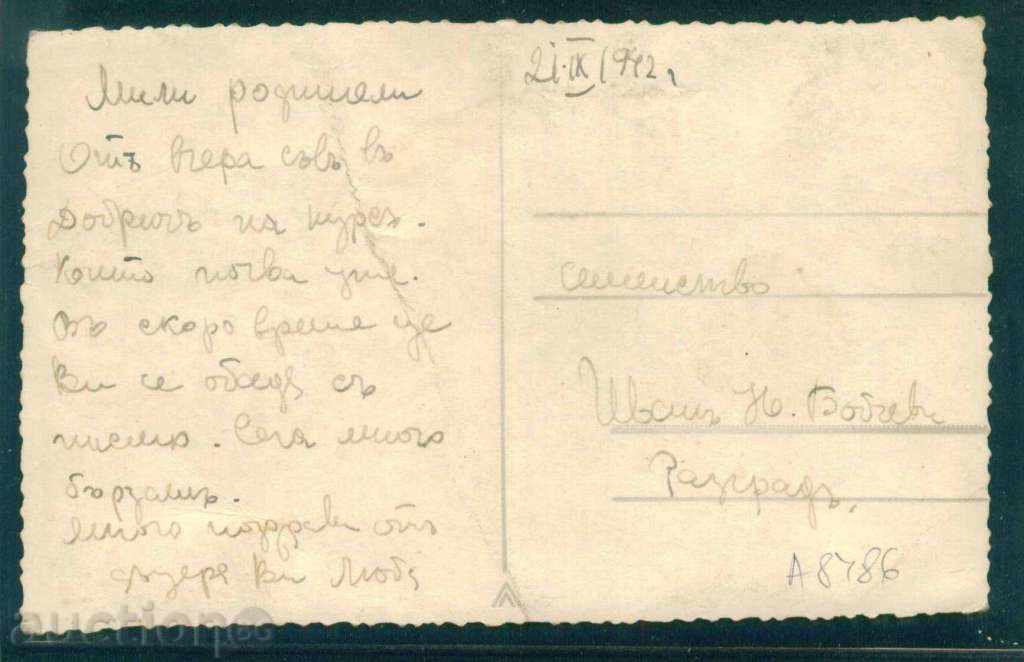 Мили родители
Отъ вчера съмъ въ
Добричъ на курсъ.
Който почва утре.
Въ скоро време ще
Ви се обадя съ
писмо. Сега много
бързамъ.
Много поздрави отъ
дъщеря Ви Люба
21.IX.1942 г.
семейство
Иванъ Н. Бобчеви
Разградъ.
A8786
auction.bg